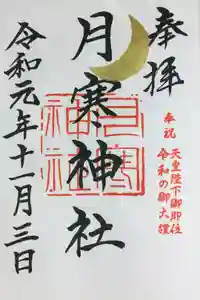 奉拝
奉祝
天皇陛下御即位
令和の御大禮
月寒神社
月寒神社
令和元年十一月三日